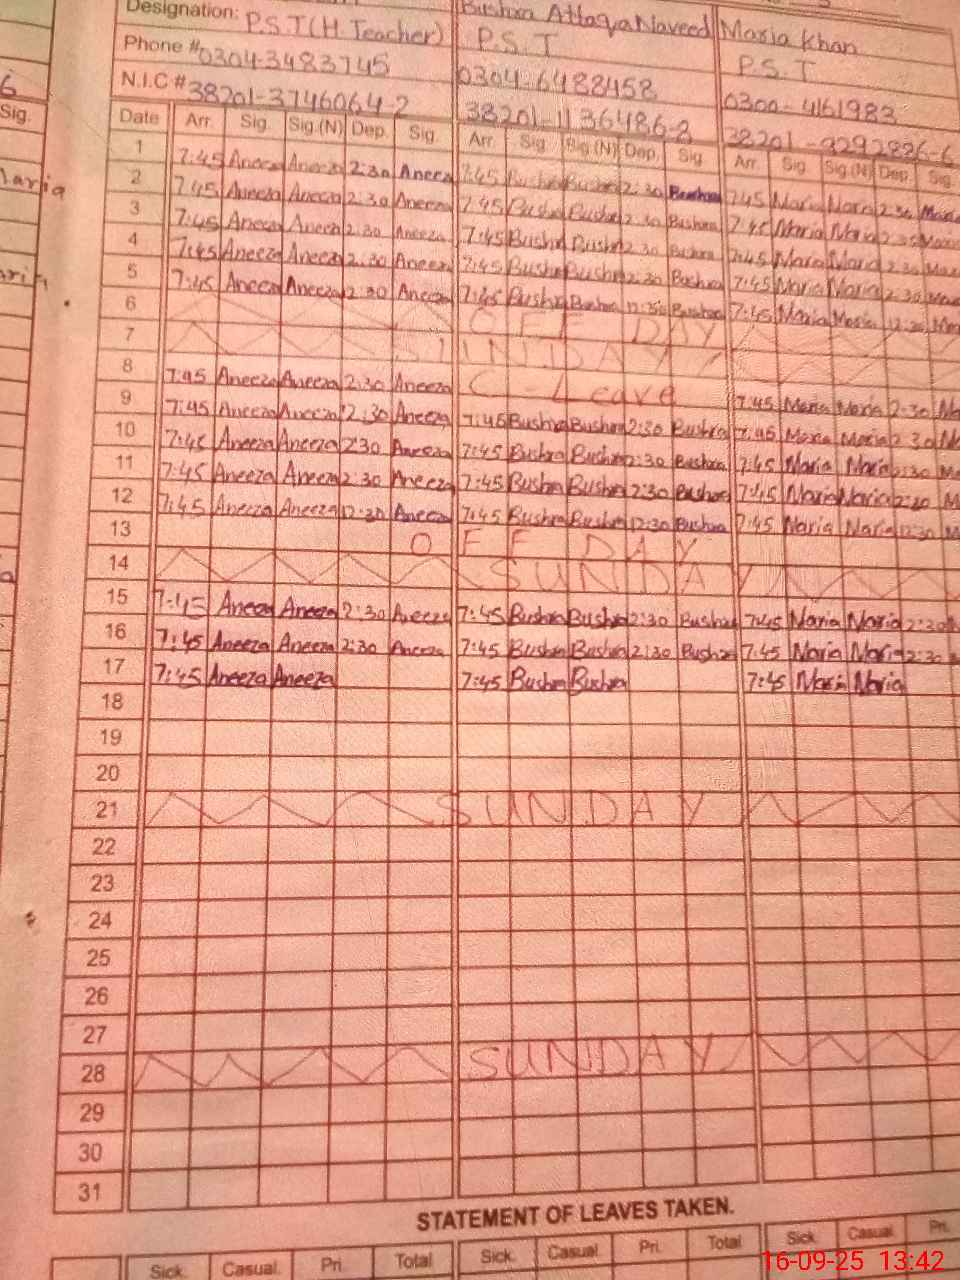 Designation: P.S.T (H. Teacher) Bushra Attaqa Naveed Maria Khan
Phone # 0304-3483745 P.S.T P.S.T
N.I.C # 38201-3746064-2 0304-6488458 0300-4161983
38201-1136486-8 38201-9292886-6
Date Arr. Sig. Sig.(N) Dep. Sig. Arr. Sig. Sig.(N) Dep. Sig. Arr. Sig. Sig.(N) Dep. Sig.
1 7:45 Aneeza Aneeza 2:30 Aneeza 7:45 Bushra Bushra 2:30 Bushra 7:45 Maria Maria 2:30 Maria
2 7:45 Aneeza Aneeza 2:30 Aneeza 7:45 Bushra Bushra 2:30 Bushra 7:45 Maria Maria 2:30 Maria
3 7:45 Aneeza Aneeza 2:30 Aneeza 7:45 Bushra Bushra 2:30 Bushra 7:45 Maria Maria 2:30
4 7:45 Aneeza Aneeza 2:30 Aneeza 7:45 Bushra Bushra 2:30 Bushra 7:45 Maria Maria 2:30
5 7:45 Aneeza Aneeza 2:30 Aneeza 7:45 Bushra Bushra 12:30 Bushra 7:45 Maria Maria 12:30
6 OFF DAY
7 SUNDAY
8 7:45 Aneeza Aneeza 2:30 Aneeza C-Leave 7:45 Maria Maria 2:30
9 7:45 Aneeza Aneeza 2:30 Aneeza 7:45 Bushra Bushra 2:30 Bushra 7:45 Maria Maria 2:30
10 7:45 Aneeza Aneeza 2:30 Aneeza 7:45 Bushra Bushra 2:30 Bushra 7:45 Maria Maria 2:30
11 7:45 Aneeza Aneeza 2:30 Aneeza 7:45 Bushra Bushra 2:30 Bushra 7:45 Maria Maria 2:30
12 7:45 Aneeza Aneeza 12:30 Aneeza 7:45 Bushra Bushra 12:30 Bushra 7:45 Maria Maria 12:30
13 OFF DAY
14 SUNDAY
15 7:45 Aneeza Aneeza 2:30 Aneeza 7:45 Bushra Bushra 2:30 Bushra 7:45 Maria Maria 2:30
16 7:45 Aneeza Aneeza 2:30 Aneeza 7:45 Bushra Bushra 2:30 Bushra 7:45 Maria Maria 2:30
17 7:45 Aneeza Aneeza 7:45 Bushra Bushra 7:45 Maria Maria
18
19
20
21 SUNDAY
22
23
24
25
26
27
28 SUNDAY
29
30
31
STATEMENT OF LEAVES TAKEN.
Sick. Casual. Pri. Total Sick. Casual. Pri. Total Sick. Casual. Pri.
16-09-25 13:42